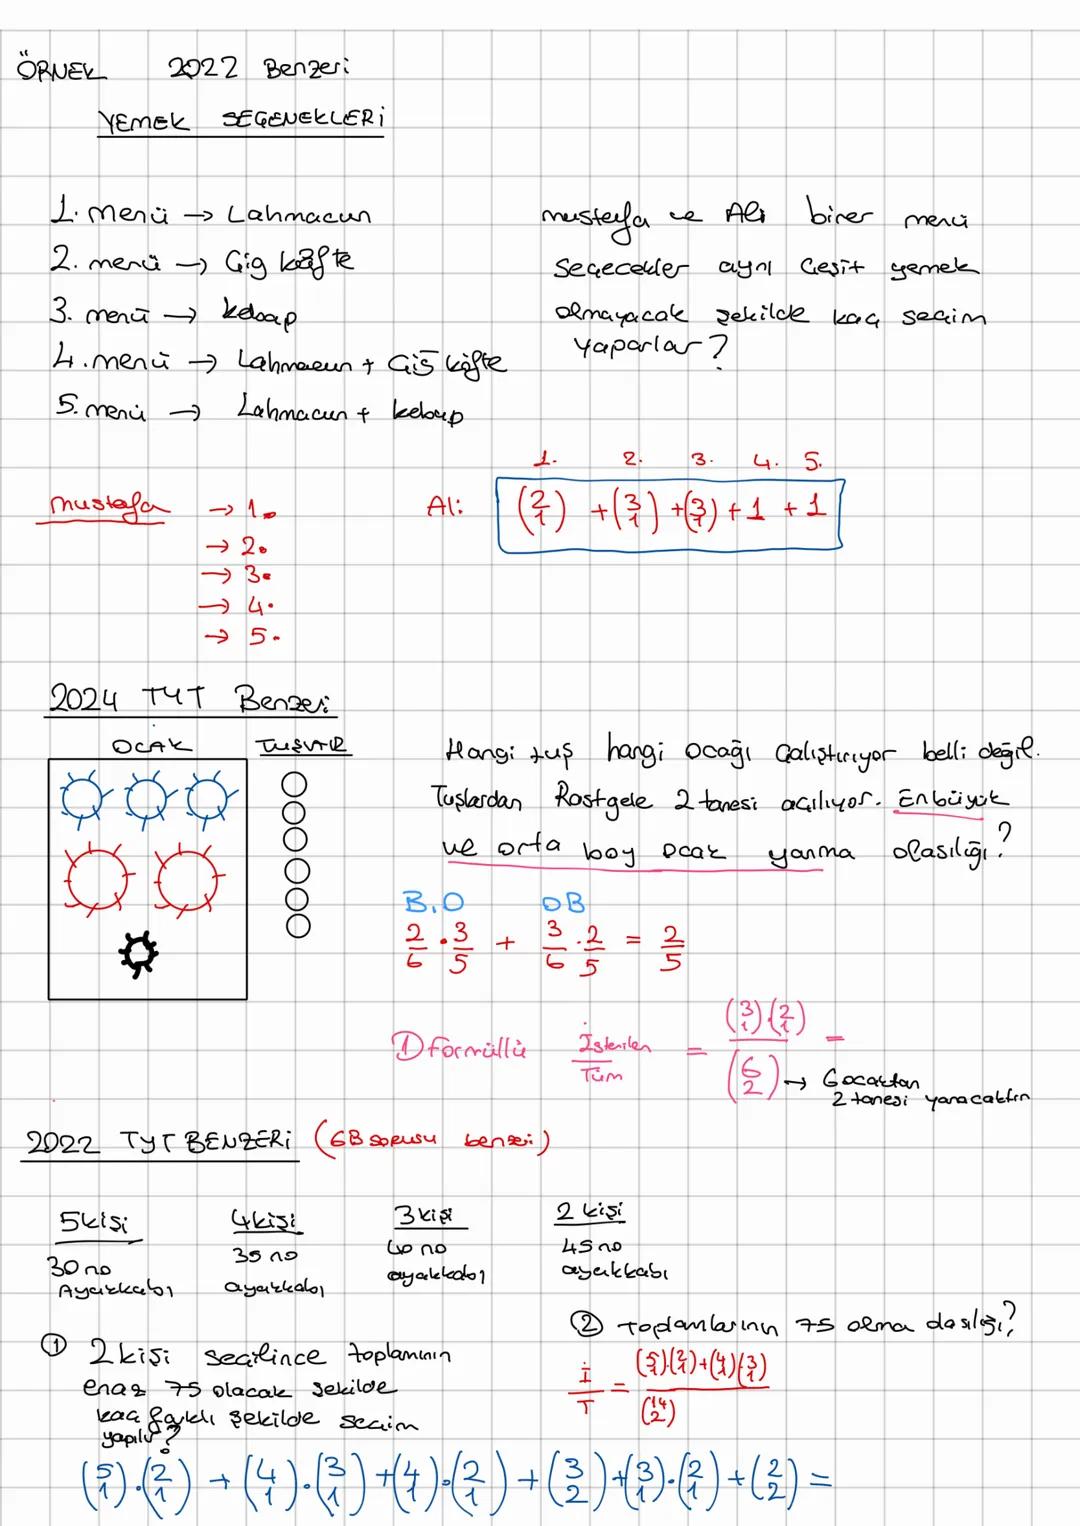 ÖRNEK 2022 Benzeri
YEMEK SEÇENEKLERİ
1. menü → Lahmacun
2. menü → Çiğ köfte
3. menü → kebap
4. menü → Lahmacun + Çiğ köfte
5. menü → Lahmacun + kebap
mustafa ve Ali birer menü
seçecekler aynı Çeşit yemek
olmayacak şekilde kaç seçim
yaparlar?
mustafa → 1.
→ 2.
→ 3.
→ 4.
→ 5.
1. 2. 3. 4. 5.
Ali: (2 1) + (3 1) + (3 1) + 1 + 1
2024 TYT Benzeri
OCAK TUŞLAR
Hangi tuş hangi ocağı çalıştırıyor belli değil.
Tuşlardan Rastgele 2 tanesi açılıyor. En büyük
ve orta boy ocak yanma olasılığı?
B,O OB
2/6 · 3/5 + 3/6 · 2/5 = 2/5
1) formüllü İstenilen/Tüm = (3 1)(2 1)/(6 2) =
→ 6 ocaktan
2 tanesi yanacaktır
2022 TYT BENZERİ (GB sorusu benzeri)
5 kişi 4 kişi 3 kişi 2 kişi
30 no 35 no 40 no 45 no
Ayakkabı ayakkabı ayakkabı ayakkabı
① 2 kişi seçilince toplamının
en az 75 olacak şekilde
kaç farklı şekilde seçim
yapılır?
② toplamlarının 75 olma olasılığı?
İ/T = (5 1)(2 1)+(4 1)(3 1)/(14 2)
(5 1).(2 1) + (4 1).(3 1) + (4 1).(2 1) + (3 2) + (3 1).(2 1) + (2 2) =